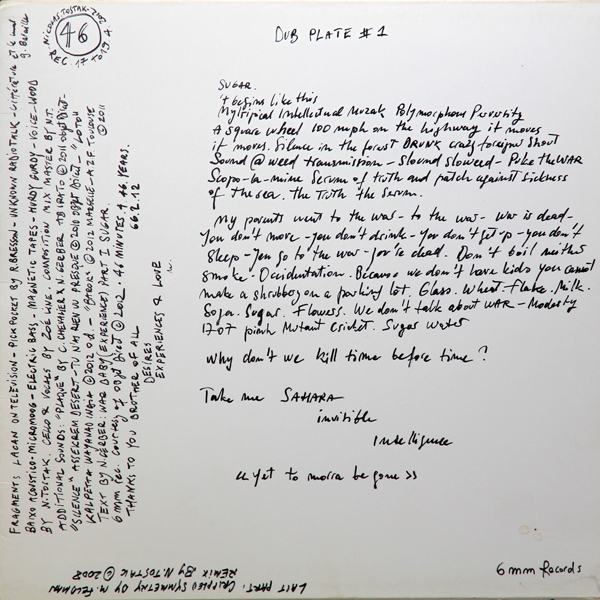 DUB PLATE #1
SUGAR.
't begins like this
Myltipical Intellectual Muzak Polymorphous Perversity
A square wheel 100 mph on the highway it moves
it moves. Silence in the forest DRUNK crazy foreigner Shout
Sound @ weed transmission - Slound Slowed - Poke the WAR
Scopo-la-mine Serum of truth and patch against sickness
of the sea. The Truth the Serum.
My parents went to the war - to the war - war is dead -
You don't move - you don't drink - You don't get-p - you don't
sleep - You go to the war - you're dead. Don't boil neither
smoke. Occidentation. Because we don't have kids you cannot
make a shrubbery on a parking lot. Glass. Wheat. Flake. Milk.
Soja. Sugar. Flowers. We don't talk about WAR - Modesty
1707 pink Mutant Cricket. Sugar Water
Why don't we kill time before time?
Take me SAHARA
invisible
Intelligence
<< Yet to morra be gone >>
6 mm Records
NICOLAS TOSTAK - 2012
46
REC. 17 to 19 A
FRAGMENTS LACAN ON TELEVISION - PICKPOCKET BY R. BRESSON - UNKNOWN RADIOTALK - LITTÉRATURE et le mal G. Bataille
BAIXO ACUSTICO - MICROMOOG - ELECTRIC BASS - MAGNETIC TAPES - HURDY GURDY - VOICE - WOOD
BY N. TOSTAK. CELLO & VOCALS BY ZOÉ LINE. COMPOSITION MIX MASTER BY N.T.
ADDITIONAL SOUNDS: "PLAQUE" BY C. CHEMINER & N. GERBER © 2011 objet Direct -
"SILENCE" ASSEKREM DESERT - TU N'AS RIEN VU PRESQUE © 2010 objet Direct - "LOTO"
KALPETTA WAYANAD INDIA © 2012 O.d. - © 2012 MARSEILLE - AZF TOULOUSE
TEXT BY N. GERBER: WAR BABY (EXPERIENCE) PART I SUGAR. © 2011
6mm rec. courtesy of objet Direct © 2012. 46 MINUTES, 46 YEARS.
THANKS TO YOU BROTHER OF ALL 66.2.12
DESIRES
EXPERIENCES & LOVE
LAST PART. CRIPPLED SYMMETRY BY M. FELDMAN
REMIX BY N. TOSTAK © 2008